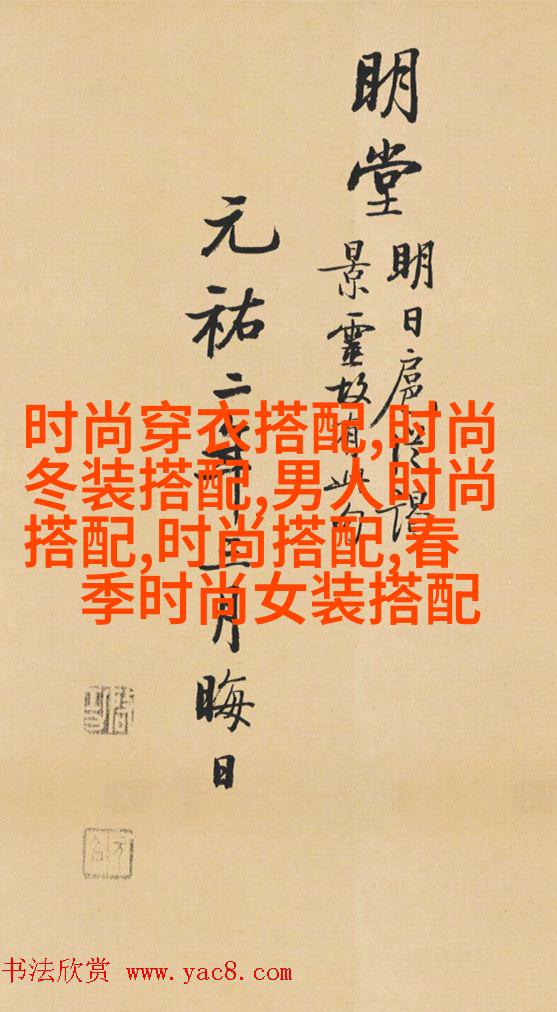 明堂
明日扈從謁
景靈故有此句
元祐二年三月晦日
时尚穿衣搭配,时尚
冬装搭配,男人时尚
搭配,时尚搭配,春
季时尚女装搭配
书法欣赏 www.yac8.com